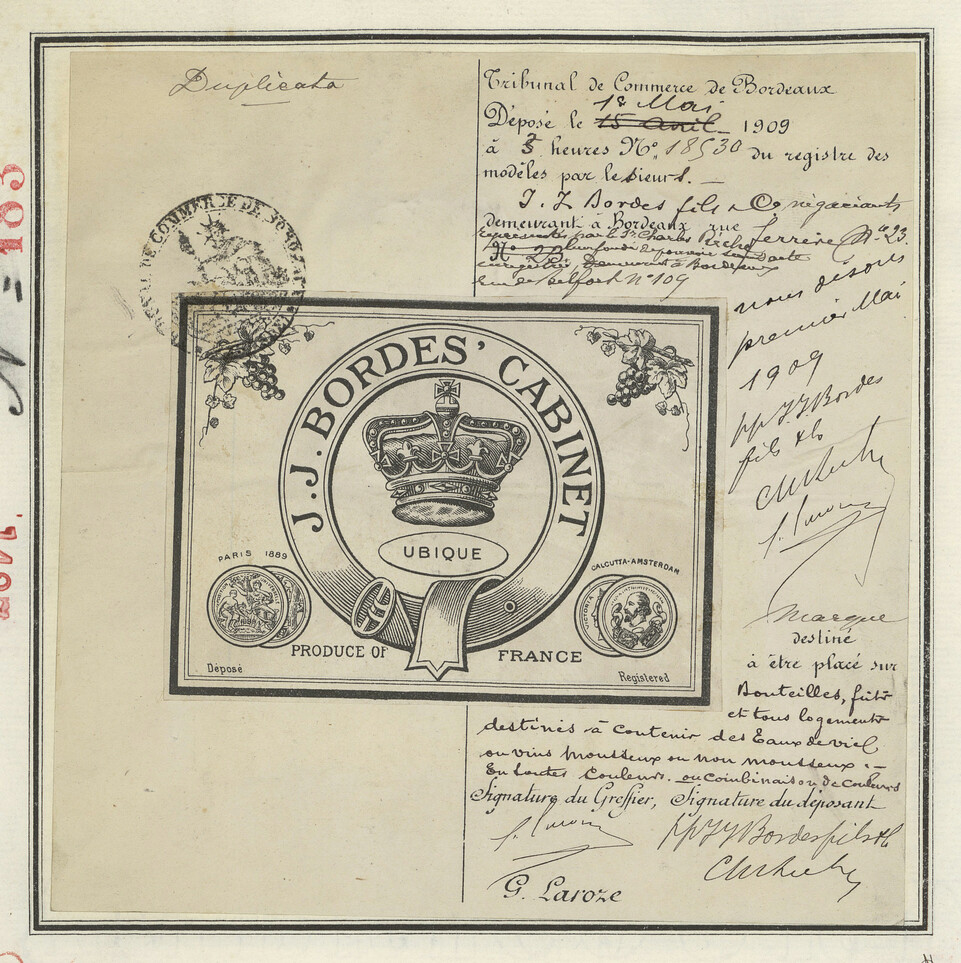 Duplicata
Tribunal de Commerce de Bordeaux
18 Mai
Déposé le 15 avril 1909
à 3 heures No. 18530 du registre des
modèles par le sieurs.
J. J. Bordes fils & Co négociants
demeurant à Bordeaux rue Ferrère No 23.
représentés par le Sr Charles
fondé de pouvoirs
enregistré demeurant à Bordeaux
rue de Belfort no 109
nous disons
premier Mai
1909
pp J. J. Bordes
fils & Co
TRIBUNAL DE COMMERCE DE BORDEAUX
J. J. BORDES' CABINET
UBIQUE
PARIS 1889
CALCUTTA-AMSTERDAM
PRODUCE OF FRANCE
Déposé
Registered
marque
destiné
à être placé sur
Bouteilles, fûts
et tous logements
destinés à contenir des Eaux de vie
ou vins mousseux ou non mousseux.
En toutes Couleurs. ou combinaison de couleurs
Signature du Greffier, Signature du déposant
pp J J Bordes fils & Co
G. Laroze
No 183